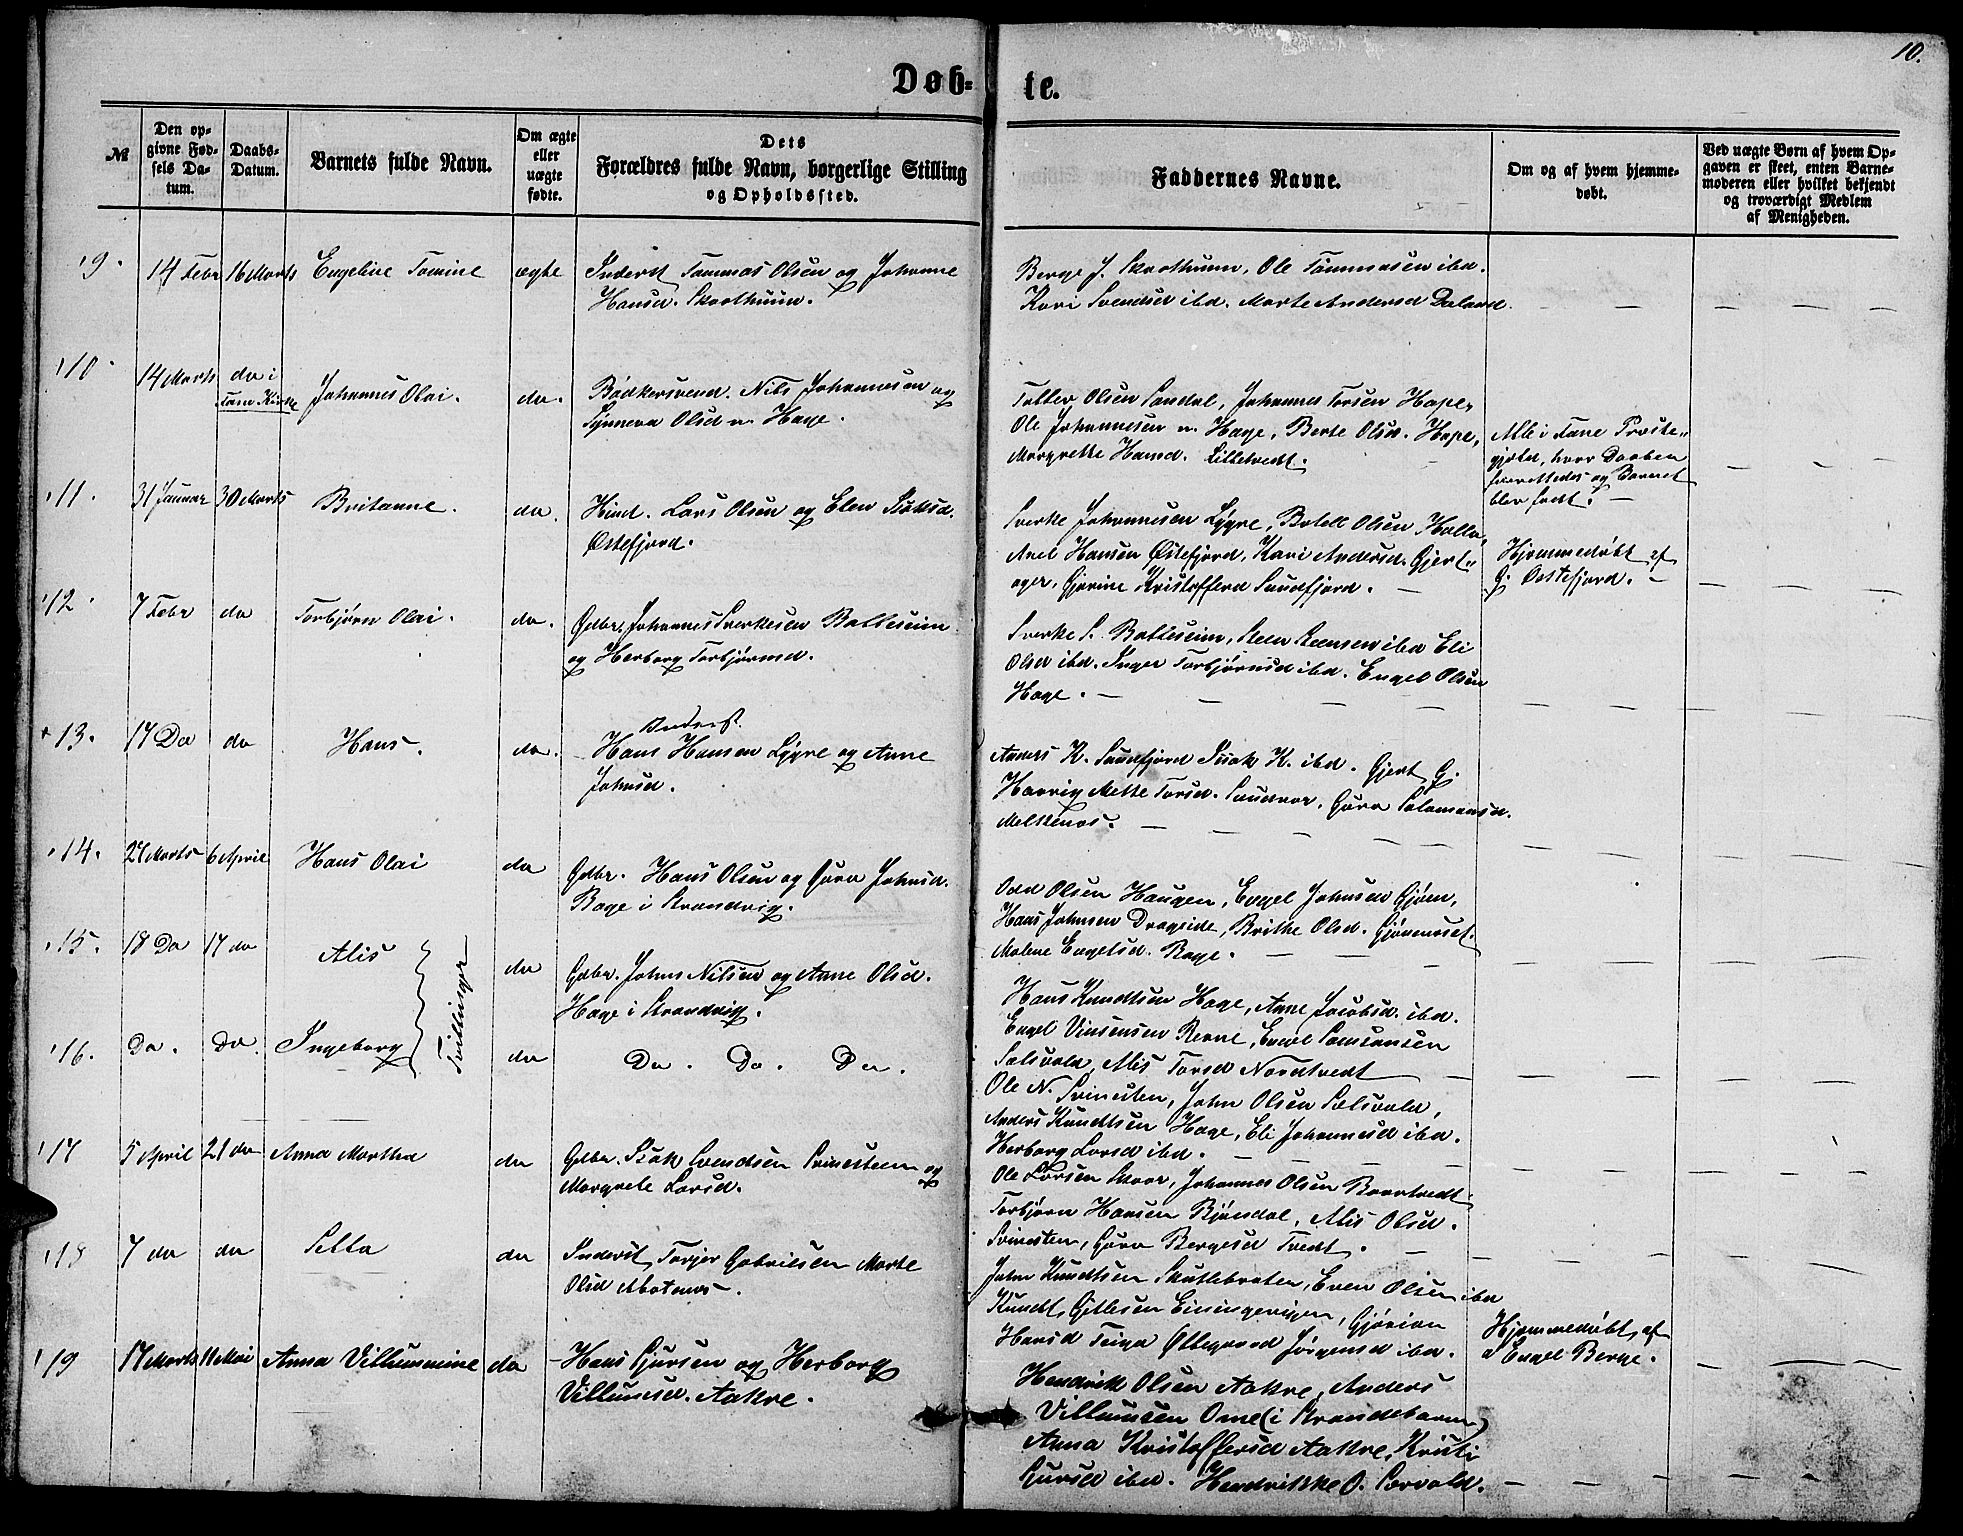 10.
Døb- te.
№
Den opgivne Fødsels Datum.
Daabs-Datum.
Barnets fulde Navn.
Om ægte eller uægte fødte.
Dets Forældres fulde Navn, borgerlige Stilling og Opholdssted.
Faddernes Navne.
Om og af hvem hjemmedøbt.
Ved uægte Børn af hvem Opgaven er skeet, enten Barnemoderen eller hvilket bekjendt og troværdigt Medlem af Menigheden.
9. 14 Febr 16 Marts Engeline Tomine ægte Inderst Tommas Olsen og Johanne
Hansd. Skorthuun.
Berge J. Skorthuun, Ole Tommasen ibd.
Kari Svendsd ibd. Marte Andersd Daland
10. 14 Marts do i Fane Kirke Johannes Olai. do. Bødkersvend. Nils Johannesen og
Synneva Olsd n. Hage.
Tollev Olsen Sandal, Johannes Torsen Hope,
Ole Johannesen n. Hage, Berte Olsd. Hope,
Margrethe Hansd. Lilletvedt.
Alle i Fane Præste-
gjæld, hvor Daaben
forrettedes og Barnet
blev født.
11. 31 Januar 30 Marts Britanne. do. Huusd. Lars Olsen og Elen Isaksd.
Østefjord.
Sverke Johannesen Lygre, Botell Olsen
Axel Hansen Østefjord, Kari Andersd. Gjert-
ager, Gjørine Kristofferd Sundfjord.
Hjemmedøbt af
G. Østefjord.
12. 7 Febr do Torbjørn Olai. do. Gdbr. Johannes Sverkesen Batteseim
og Herborg Torbjørnsd.
Sverke S. Batteseim, ibd Eli
Olsd ibd. Inger Torbjørnsd ibd. Engel Olsen
Hage.
13. 17 Do do Hans. do. Inderst.
Hans Hansen Lygre og Anne
Johnsd.
Anders K. Sundfjord Isak K. ibd. Gjert G.
Havvig Mette Torsd. Sandvor, Guro Salamonsd.
Melkenos.
14. 24 Marts 6 April Hans Olai do Gdbr. Hans Olsen og Guro Johnsd.
Bage i Strandvig.
Odd Olsen Haugen, Engel Johnsen Gjøen,
Hans Johnsen Drageide, Brithe Olsd. Gjønnoset.
Malene Engelsd. Bage.
15. 18 Do 17 do Alis do Gdbr. Johns Nilsen og Anne Olsd.
Hage i Strandvig.
Tvillinger
Hans Knudtsen Hage, Anne Jacobsd. ibd.
Engel Vinsensen Revne, Engel Samsonsen
Salsvold, Alis Torsd Nordtvedt
16. Do. Do. Ingeborg do Do. Do. Do.
Ole N. Svinesten, John Olsen Salsvold,
Anders Knudtsen Hage, Eli Johannesd ibd.
Herborg Larsd ibd.
17 5 April 21 do Anna Martha do Gdbr. Isak Svendsen Svinesteen og
Margrete Larsd.
Ole Larsen Skaar, Johannes Olsen
Torbjørn Hansen Bjøndal, Alis Olsd.
Svinesten, Guro Bergesd Tvedt.
18 7 do do Setta do Inderst Torger Gabrielsen Marte
Olsd Abotsnes.
John Knudtsen Skutlebraten, Even Olsen ibd
Knudt Gitlesen Einingevigen, Gjørian
Hansd Teiga Øllegaard Jørgensd ibd.
19 17 Marts 11 Mai Anna Villumine do Hans Gjursen og Herborg
Villumsd. Aakre.
Hjemmedøbt af
Engel Berge.
Hendrik Olsen Aakre, Anders
Villumsen Ome (i Strandebarm)
Anna Kristoffersd Aakre, Kristi
Gursd ibd. Hendrikke O. Sørvold.